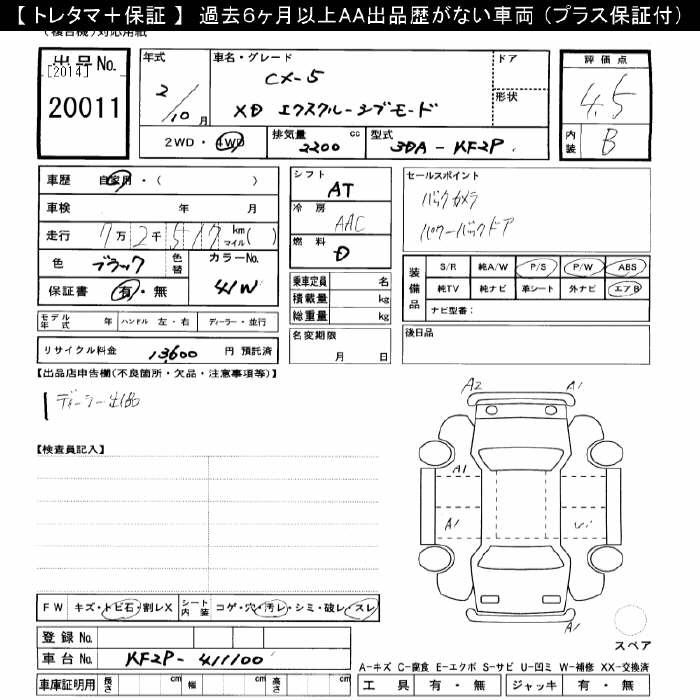 【 トレタマ＋保証 】 過去6ヶ月以上AA出品歴がない車両（プラス保証付）
出品No.
[2014]
20011
年式
2/10月
車名・グレード
CX-5
XD エクスクルーシブモード
ドア
形状
2WD・4WD
排気量 cc
2200
型式
3DA-KF2P
評価点
4.5
内装 B
車歴 自家用・( )
車検 年 月
走行 7万2千517 km マイル( )
色 ブラック 色替 カラーNo.
41W
保証書 有・無
シフト
AT
冷房
AAC
燃料
D
乗車定員 名
積載量 kg
総重量 kg
名変期限
月 日
セールスポイント
バックカメラ
パワーバックドア
装備品
S/R 純A/W P/S P/W ABS
純TV 純ナビ 革シート 外ナビ エアB
ナビ型番：
後日品
モデル年式 年 ハンドル 左・右 ディーラー・並行
リサイクル料金 13,600 円 預託済
【出品店申告欄(不良箇所・欠品・注意事項等)】
ディーラー出品
【検査員記入】
A2 A1
A1
A1
A1
FW キズ・トビ石・割レX シート内装 コゲ・穴・汚レ・シミ・破レ・スレ
登録No.
車台No. KF2P-411100
車庫証明用 長さ cm 幅 cm 高さ cm
スペア
A-キズ C-腐食 E-エクボ S-サビ U-凹ミ W-補修 XX-交換済
工具 有・無 ジャッキ 有・無